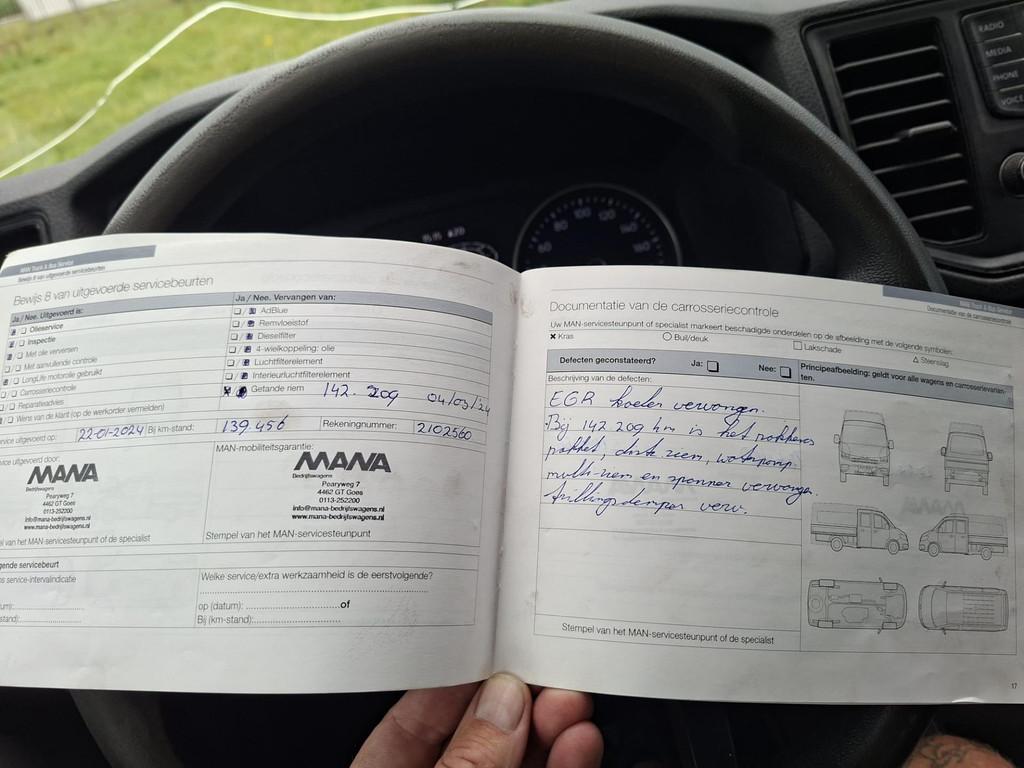 MAN Truck & Bus Service
Bewijs 8 van uitgevoerde servicebeurten
Bewijs 8 van uitgevoerde servicebeurten
Ja / Nee. Uitgevoerd is:
Olieservice
Inspectie
Met olie verversen
Met aanvullende controle
LongLife motorolie gebruikt
Carrosseriecontrole
Reparatieadvies
Wens van klant (op de werkorder vermelden)
Ja / Nee. Vervangen van:
AdBlue
Remvloeistof
Dieselfilter
4-wielkoppeling: olie
Luchtfilterelement
Interieurluchtfilterelement
Getande riem 142.209 04/03/24
vice uitgevoerd op: 22-01-2024 Bij km-stand: 139.456 Rekeningnummer: 2102560
vice uitgevoerd door:
MANA
Bedrijfswagens
Pearyweg 7
4462 GT Goes
0113-252200
info@mana-bedrijfswagens.nl
www.mana-bedrijfswagens.nl
el van het MAN-servicesteunpunt of de specialist
MAN-mobiliteitsgarantie:
MANA
Bedrijfswagens
Pearyweg 7
4462 GT Goes
0113-252200
info@mana-bedrijfswagens.nl
www.mana-bedrijfswagens.nl
Stempel van het MAN-servicesteunpunt
gende servicebeurt
ns service-intervalindicatie
um):
stand):
Welke service/extra werkzaamheid is de eerstvolgende?
op (datum): of
Bij (km-stand):
MAN Truck & Bus Service
Documentatie van de carrosseriecontrole
Documentatie van de carrosseriecontrole
Uw MAN-servicesteunpunt of specialist markeert beschadigde onderdelen op de afbeelding met de volgende symbolen:
Kras Buil/deuk Lakschade Steenslag
Defecten geconstateerd? Ja: Nee:
Principeafbeelding: geldt voor alle wagens en carrosserievarian-
ten.
Beschrijving van de defecten:
EGR koeler vervangen.
Bij 142 209 km is het
pakket, riem, waterpomp
multi-riem en spanner vervangen.
trillingsdemper verv.
Stempel van het MAN-servicesteunpunt of de specialist
17
RADIO
MEDIA
PHONE
VOICE
60 80 100 120 140 160